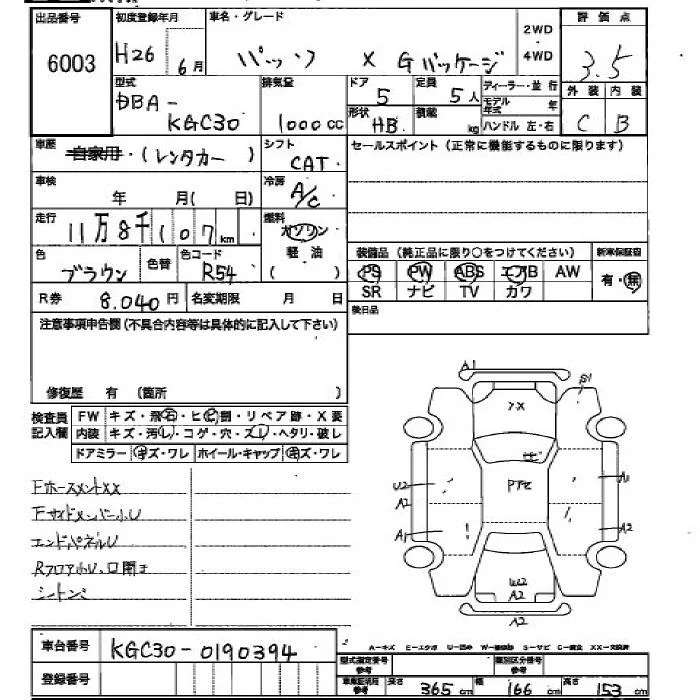 出品番号 6003
初度登録年月 H26 6月
車名・グレード パッソ X Gパッケージ
2WD・4WD
評価点 3.5
型式 DBA-KGC30
排気量 1000cc
ドア 5
形状 HB
定員 5人
積載 kg
ディーラー・並行
モデル年式 年
ハンドル 左・右
外装 C
内装 B
車歴 自家用・(レンタカー)
シフト CAT
セールスポイント (正常に機能するものに限ります)
車検 年 月( 日)
冷房 A/C
走行 11万8千107km
燃料 ガソリン 軽油 ( )
色 ブラウン
色替
色コード R54
装備品 (純正品に限り○をつけてください)
PS PW ABS エアB AW
SR ナビ TV カワ
新車保証書 有・無
R券 8,040円
名変期限 月 日
後日品
注意事項申告欄(不具合内容等は具体的に記入して下さい)
修復歴 有 (箇所 )
検査員記入欄
FW キズ・飛石・ヒビ割・リペア跡・X要
内装 キズ・汚れ・コゲ・穴・ズレ・ヘタリ・破レ
ドアミラー キズ・ワレ ホイール・キャップ キズ・ワレ
FホースメントXX
Fサイドメンバー小U
エンドパネルU
Rフロア小U、口開き
A1
S1
XX
U2
A2
A1
A1
A2
A2
A2
A-キズ E-エクボ U-凹み S-サビ C-腐食 XX-交換済
車台番号 KGC30-0190394
登録番号
型式指定番号 参考
類別区分番号 参考
車庫証明用 参考 長さ 365cm 幅 166cm 高さ 153cm